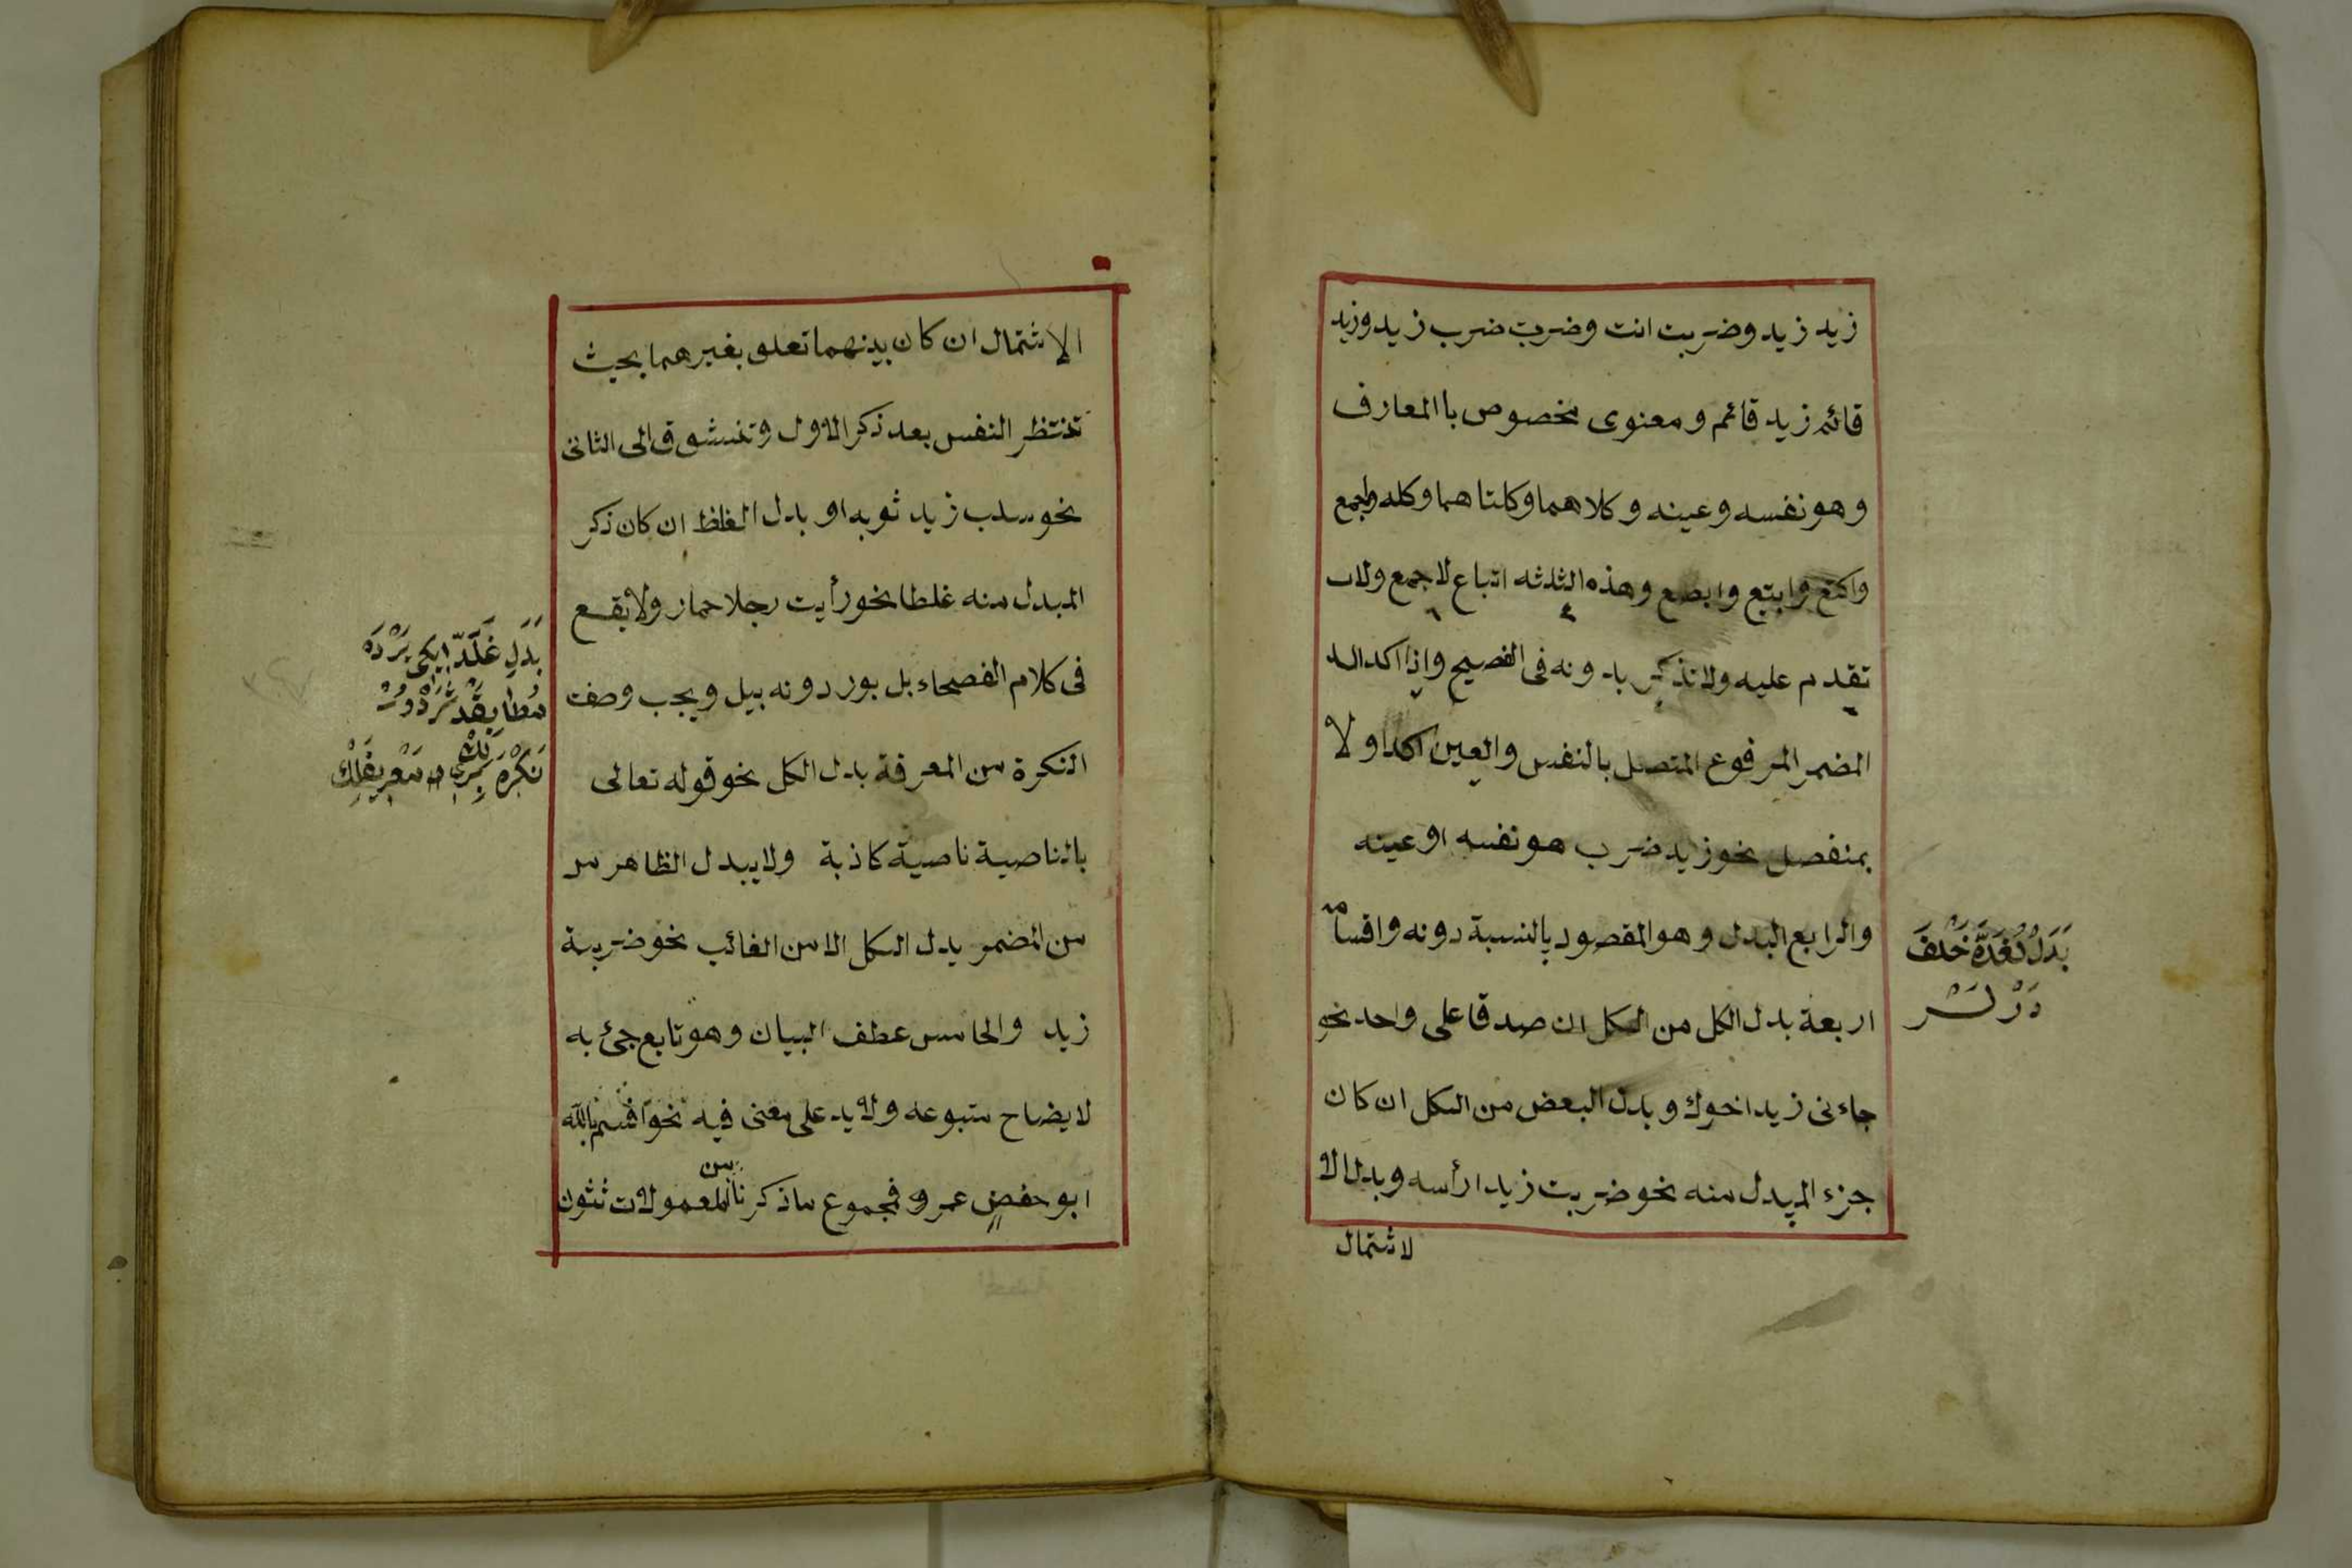 زيد زيد وضربت انت وضرب ضرب زيد وزيد
قائم زيد قائم ومعنوى مخصوص باالمعارف
وهو نفسه وعينه وكلاهما وكلتاهما وكله واجمع
واكتع وابتع وابصع وهذه الثلثه اتباع لاجمع ولا
تقدم عليه ولا تذكر بدونه فى الفصيح واذا اكد الـ
المضمر المرفوع المتصل بالنفس والعين اكد اولا
بمنفصل نحو زيد ضرب هو نفسه او عينه
والرابع البدل وهو المقصود بالنسبة دونه واقسامه
اربعة بدل الكل من الكل ان صدقا على واحد نحو
جاءنى زيد اخوك وبدل البعض من الكل ان كان
جزء المبدل منه نحو ضربت زيدا رأسه وبدل الا
لاشتمال
بدل
در
الاشتمال ان كان بينهما تعلق بغيرهما بحيث
تنتظر النفس بعد ذكر الاول وتتشوق الى الثانى
نحو سلب زيد ثوبه او بدل الغلظ ان كان ذكر
المبدل منه غلطا نحو رأيت رجلا حمار ولا يقع
فى كلام الفصحاء بل يوردونه ببل ويجب وصف
النكرة من المعرفة بدل الكل نحو قوله تعالى
بالناصية ناصية كاذبة ولا يبدل الظاهر من
من المضمر بدل الكل الا من الغائب نحو ضربية
زيد والخامس عطف البيان وهو تابع جئ به
لايضاح متبوعه ولا يد على معنى فيه نحو اقسم بالله
ابو حفص عمر و فمجموع ما ذكرنا من المعمولات ثثون
بدل غلد
نكره